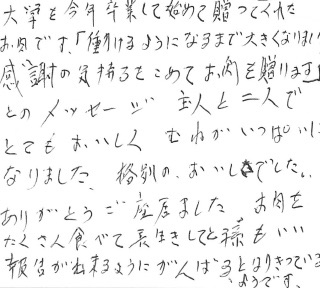 大学を今年卒業して始めて贈ってくれた
お肉です、「働けるようになるまで大きくなりまし
感謝の気持ちをこめてお肉を贈ります」
とのメッセージ 主人と二人で
とてもおいしく むねがいっぱいに
なりました、 格別の、おいしさでした。
ありがとうご座居ました お肉を
たくさん食べて長生きして 孫もいい
報告が出来るようにがんばる、となりきっている
ようです、